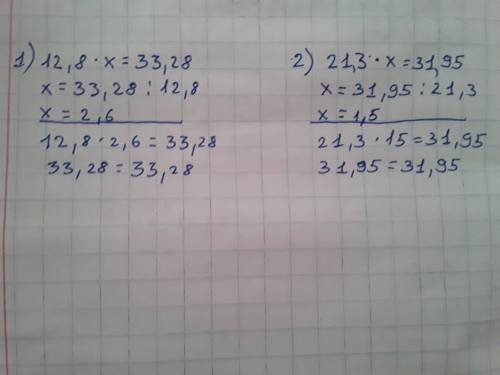 1) 12,8 · x = 33,28
x = 33,28 : 12,8
x = 2,6
12,8 · 2,6 = 33,28
33,28 = 33,28
2) 21,3 · x = 31,95
x = 31,95 : 21,3
x = 1,5
21,3 · 15 = 31,95
31,95 = 31,95